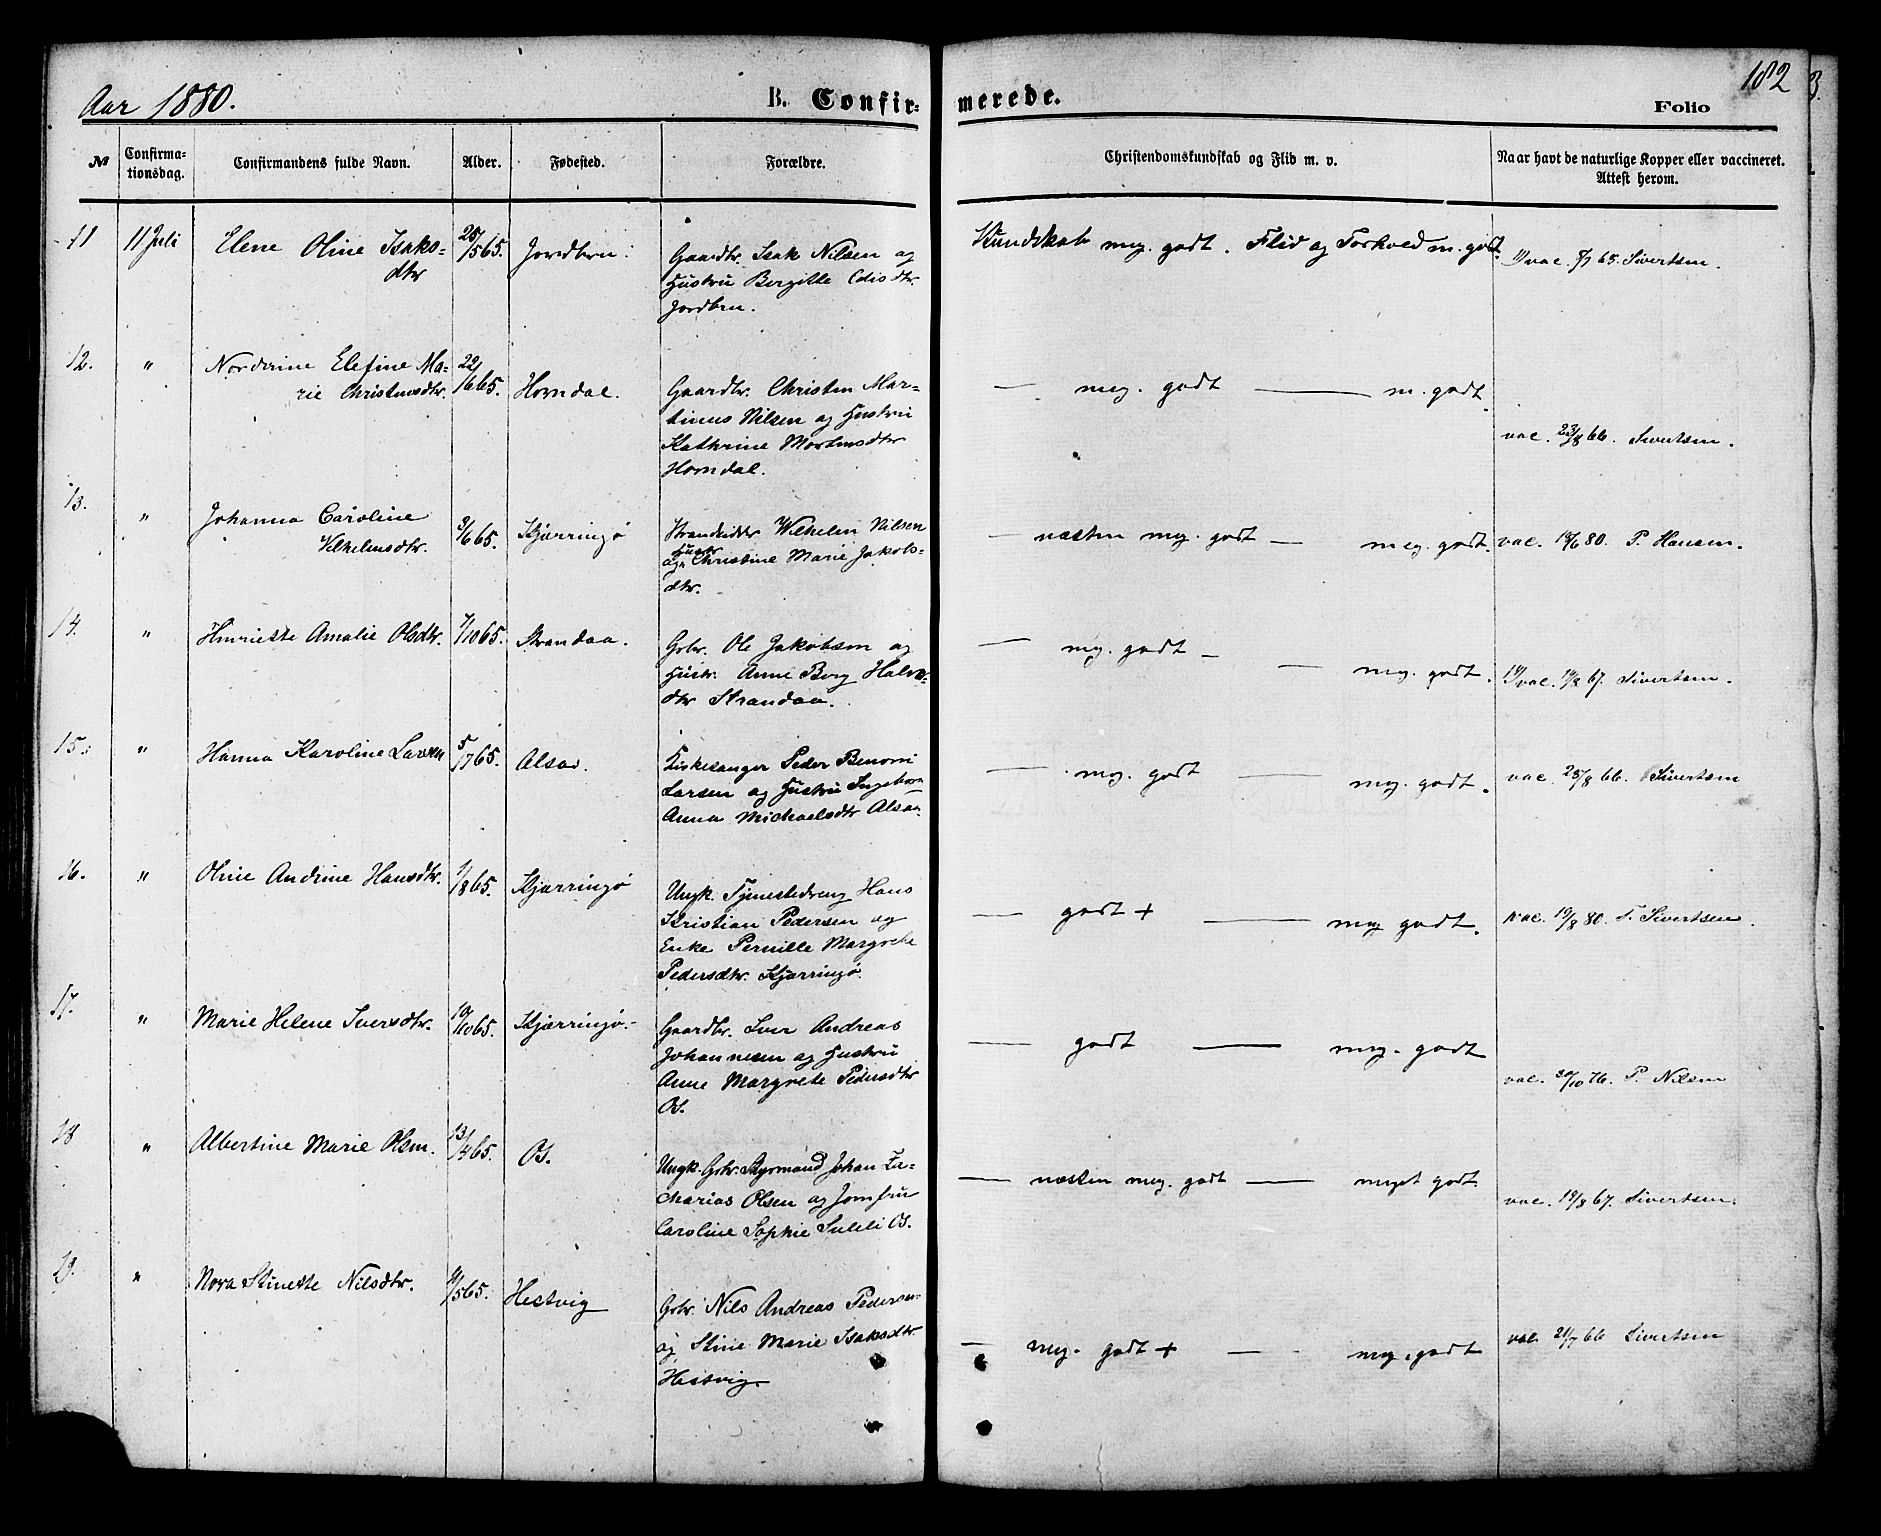 Aar 1880.
B. Confirmerede.
182
Folio
№
Confirmationsdag.
Confirmandens fulde Navn.
Alder.
Fødested.
Forældre.
Christendomskundskab og Flid m. v.
Naar havt de naturlige Kopper eller vaccineret.
Attest herom.
11
11 Juli
Elene Oline Isaks-
dtr
25/5 65.
Jordbru.
Gaardbr. Isak Nilsen og
Hustru Bergitte dtr.
Jordbru.
Kundskab meg. godt. Flid og Forhold m. godt.
vac. 8/7 65. Sivertsen.
12.
"
Nordrine Elefine Ma-
rie Christensdtr.
22/6 65.
Horndal.
Gaardbr. Christen Mar-
tinus Nilsen og Hustru
Kathrine Mortensdtr
Horndal.
— meg. godt — m. godt.
vac. 23/8 66. Sivertsen.
13.
"
Johanna Caroline
Vilhelmsdtr.
3/6 65.
Kjærringø
Strandsidder Wilhelm Nilsen
og Hustr. Christine Marie Jakobs-
dtr.
— næsten meg. godt — meg. godt.
vac. 18/6 80. P. Hansen.
14.
"
Henriette Amalie Olsdtr.
7/10 65.
Strandaa.
Grbr. Ole Jakobsen og
Hustr. Anne Berg
dtr Strandaa.
— meg. godt — — meg. godt.
vac. 19/8 67. Sivertsen.
15.
"
Hanna Karoline Larsen
5/7 65.
Alsos.
Kirkesanger Peder Benoni
Larsen og Hustru Ingeborg
Anna Michaelsdtr Alsos.
— meg. godt — meg. godt.
vac. 25/8 66. Sivertsen
16.
"
Oline Andrine Hansdtr.
1/8 65.
Kjærringø
Ungk. Tjenestedreng Hans
Kristian Pedersen og
Enke Pernille Margrete
Pedersdtr. Kjærringø.
— godt + — meg godt.
vac. 19/8 80. T. Sivertsen.
17.
"
Marie Helene Iversdtr.
10/10 65.
Kjærringø.
Gaardbr. Iver Andreas
Johannesen og Hustru
Anne Margrete Pedersdtr
Os.
— godt — meg. godt
vac. 30/10 76. P. Nilsen
18
"
Albertine Marie Olsen.
13/4 65.
Os.
Ungk. Grbr. Styrmand Johan Za-
charias Olsen og Jomfru
Caroline Sophie Os.
— næsten meg. godt — meget godt.
vac. 19/8 67. Sivertsen.
19.
"
Nora Stinette Nilsdtr.
11/5 65.
Hestvig
Grbr. Nils Andreas Pedersen
og Stine Marie Isaksdtr.
Hestvig.
— meg. godt + — meg. godt
vac. 21/7 66 Sivertsen